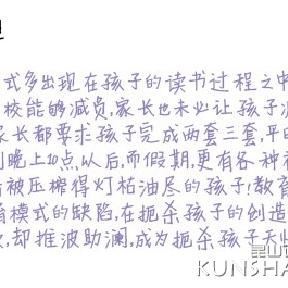 式多出现在孩子的读书过程之中
校能够减负,家长也未必让孩子减
家长都要求孩子完成两套三套,平时
到晚上10点以后,而假期,更有各种补
被压榨得灯枯油尽的孩子!教育
育模式的缺陷,在扼杀孩子的创造
却推波助澜,成为扼杀孩子天
昆山
KUNSHA